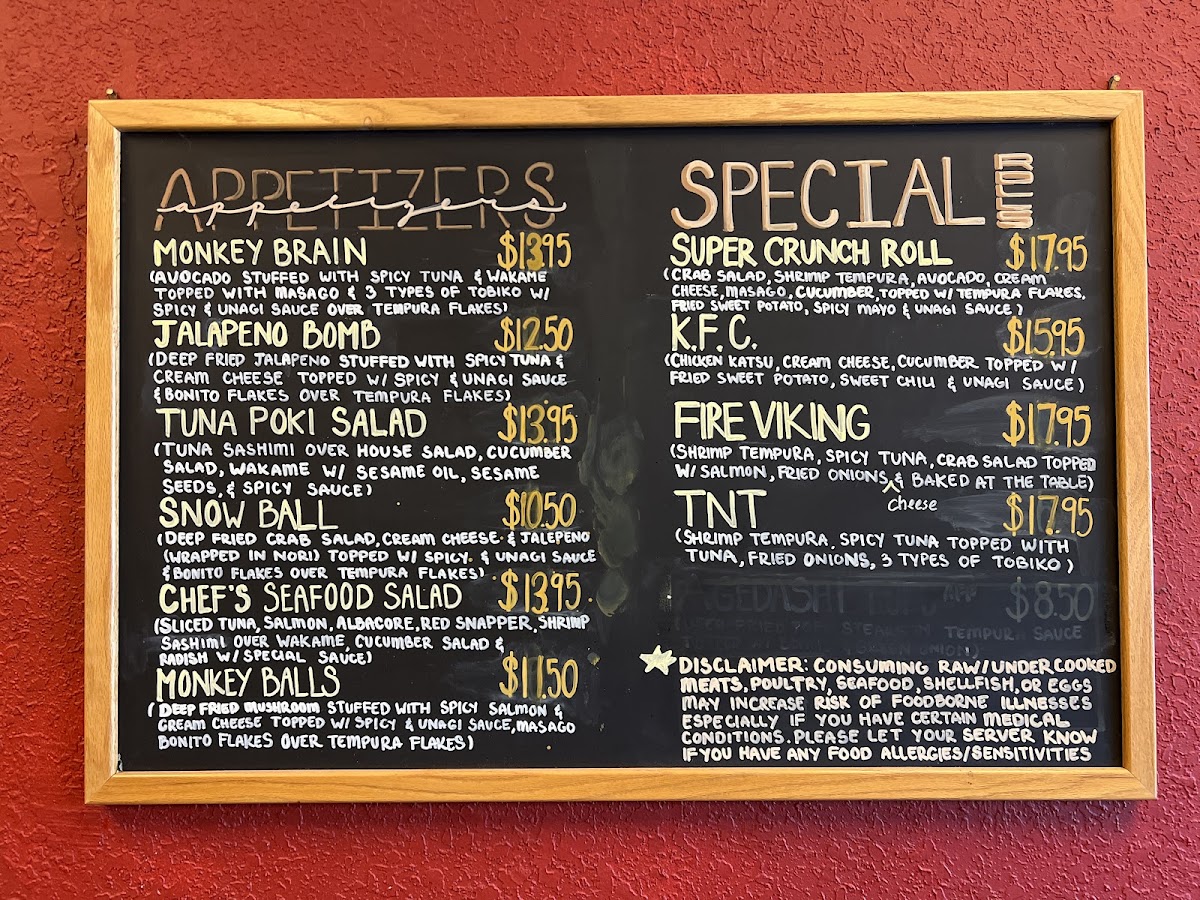 APPETIZERS
appetizers
MONKEY BRAIN $13.95
(AVOCADO STUFFED WITH SPICY TUNA & WAKAME
TOPPED WITH MASAGO & 3 TYPES OF TOBIKO W/
SPICY & UNAGI SAUCE OVER TEMPURA FLAKES)
JALAPENO BOMB $12.50
(DEEP FRIED JALAPENO STUFFED WITH SPICY TUNA &
CREAM CHEESE TOPPED W/ SPICY & UNAGI SAUCE
& BONITO FLAKES OVER TEMPURA FLAKES)
TUNA POKI SALAD $13.95
(TUNA SASHIMI OVER HOUSE SALAD, CUCUMBER
SALAD, WAKAME W/ SESAME OIL, SESAME
SEEDS, & SPICY SAUCE)
SNOW BALL $10.50
(DEEP FRIED CRAB SALAD, CREAM CHEESE & JALEPENO
(WRAPPED IN NORI) TOPPED W/ SPICY & UNAGI SAUCE
& BONITO FLAKES OVER TEMPURA FLAKES)
CHEF'S SEAFOOD SALAD $13.95
(SLICED TUNA, SALMON, ALBACORE, RED SNAPPER, SHRIMP
SASHIMI OVER WAKAME, CUCUMBER SALAD &
RADISH W/ SPECIAL SAUCE)
MONKEY BALLS $11.50
(DEEP FRIED MUSHROOM STUFFED WITH SPICY SALMON &
CREAM CHEESE TOPPED W/ SPICY & UNAGI SAUCE, MASAGO
BONITO FLAKES OVER TEMPURA FLAKES)
SPECIAL ROLLS
SUPER CRUNCH ROLL $17.95
(CRAB SALAD, SHRIMP TEMPURA, AVOCADO, CREAM
CHEESE, MASAGO, CUCUMBER, TOPPED W/ TEMPURA FLAKES,
FRIED SWEET POTATO, SPICY MAYO & UNAGI SAUCE)
K.F.C. $15.95
(CHICKEN KATSU, CREAM CHEESE, CUCUMBER TOPPED W/
FRIED SWEET POTATO, SWEET CHILI & UNAGI SAUCE)
FIRE VIKING $17.95
(SHRIMP TEMPURA, SPICY TUNA, CRAB SALAD TOPPED
W/ SALMON, FRIED ONIONS, & BAKED AT THE TABLE)
cheese
TNT $17.95
(SHRIMP TEMPURA, SPICY TUNA TOPPED WITH
TUNA, FRIED ONIONS, 3 TYPES OF TOBIKO)
AGEDASHI TOFU APP $8.50
TEMPURA SAUCE
GREEN ONION)
DISCLAIMER: CONSUMING RAW/UNDERCOOKED
MEATS, POULTRY, SEAFOOD, SHELLFISH, OR EGGS
MAY INCREASE RISK OF FOODBORNE ILLNESSES
ESPECIALLY IF YOU HAVE CERTAIN MEDICAL
CONDITIONS. PLEASE LET YOUR SERVER KNOW
IF YOU HAVE ANY FOOD ALLERGIES/SENSITIVITIES